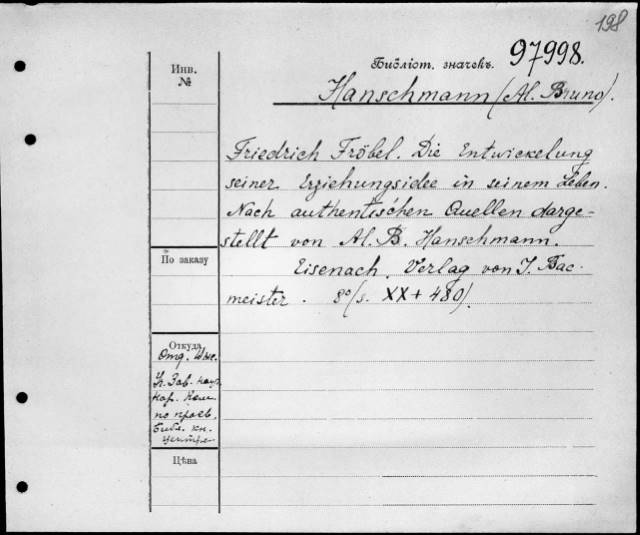 198
Библіот. значекъ. 97998.
Инв.
№
Hanschmann (Al. Bruno).
Friedrich Fröbel. Die Entwickelung
seiner Erziehungsidee in seinem Leben.
Nach authentischen Quellen darge-
stellt von Al. B. Hanschmann.
По заказу
Eisenach. Verlag von J. Bac-
meister. 8° (s. XX + 480).
Откуда
Отд.
Зав.
нар. Ком.
по просв.
Библ. кн.
центра
Цѣна